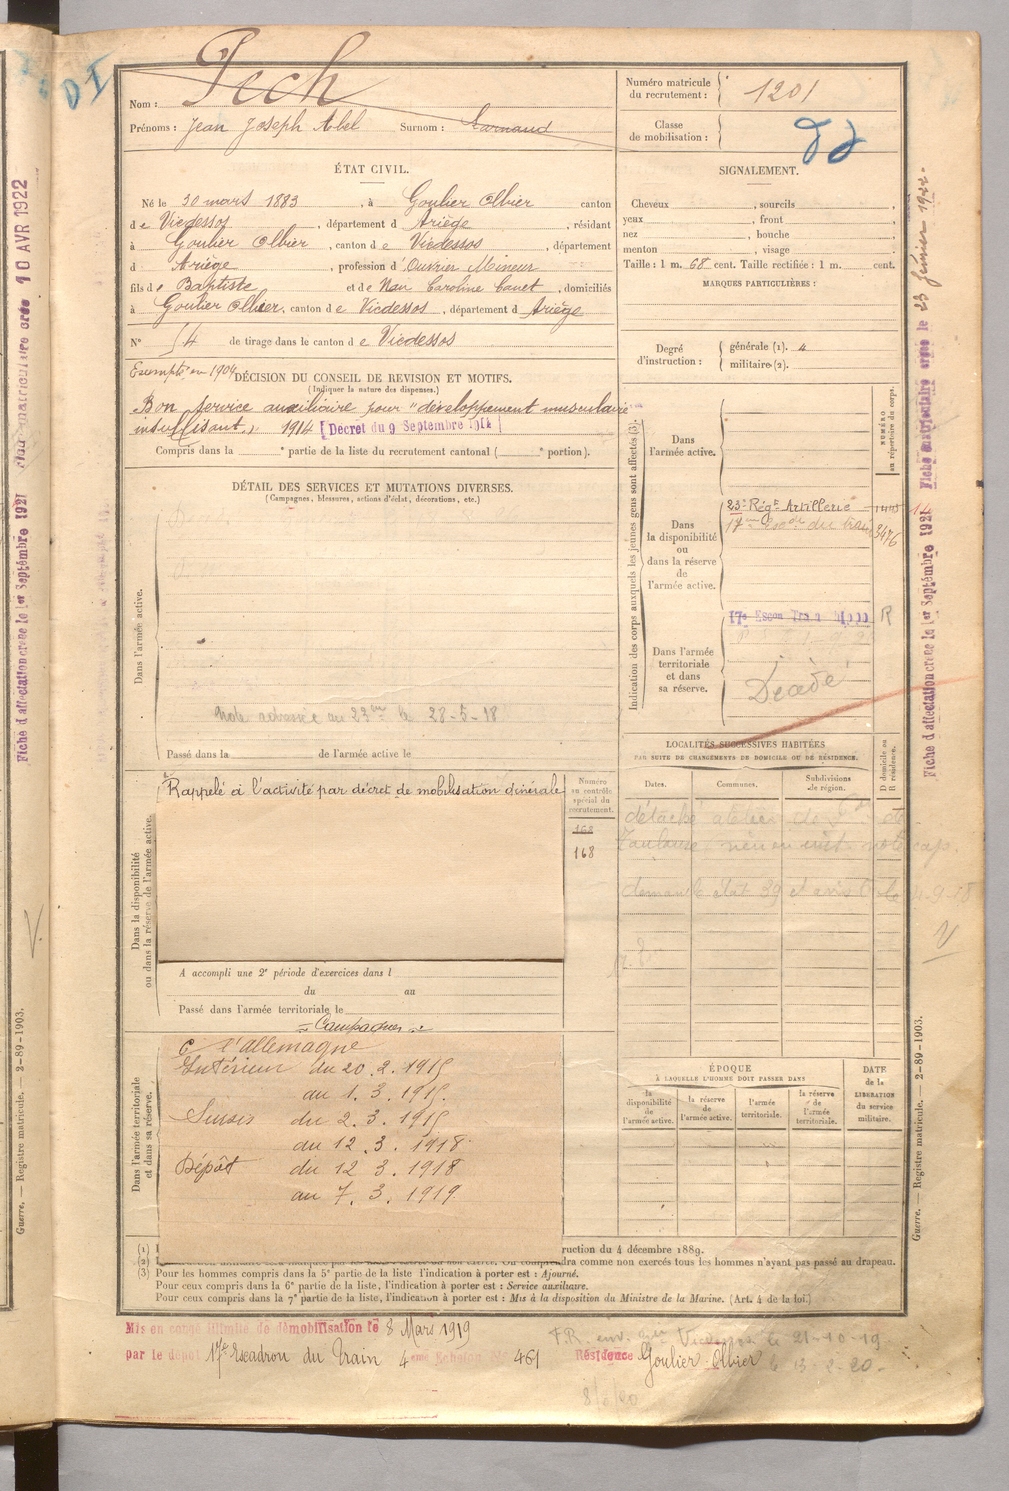 D I
Nom : Pech
Prénoms : Jean Joseph Abel Surnom : Larnaud
Numéro matricule
du recrutement : 1201
Classe
de mobilisation :
ÉTAT CIVIL.
Né le 30 mars 1883, à Goulier Olbier canton
de Vicdessos, département d Ariège, résidant
à Goulier Olbier, canton de Vicdessos, département
d Ariège, profession d'Ouvrier Mineur
fils de Baptiste et de Nau Caroline Canet, domiciliés
à Goulier Olbier, canton de Vicdessos, département d Ariège
N° 54 de tirage dans le canton de Vicdessos
SIGNALEMENT.
Cheveux , sourcils ,
yeux , front ,
nez , bouche ,
menton , visage .
Taille : 1 m. 68 cent. Taille rectifiée : 1 m. cent.
MARQUES PARTICULIÈRES :
Degré
d'instruction :
générale (1). 4
militaire (2).
Exempté en 1904
DÉCISION DU CONSEIL DE REVISION ET MOTIFS.
(Indiquer la nature des dispenses.)
Bon service auxiliaire pour "développement musculaire
insuffisant" 1914 [Décret du 9 Septembre 1914]
Compris dans la e partie de la liste du recrutement cantonal ( e portion).
DÉTAIL DES SERVICES ET MUTATIONS DIVERSES.
(Campagnes, blessures, actions d'éclat, décorations, etc.)
Dans l'armée active.
note adressée au 23me le 28-5-18
Passé dans la de l'armée active le
Indication des corps auxquels les jeunes gens sont affectés (3).
NUMÉRO
au répertoire du corps.
Dans
l'armée active.
Dans
la disponibilité
ou
dans la réserve
de
l'armée active.
23e Régt Artillerie
17me Escon du train 3476
Dans l'armée
territoriale
et dans
sa réserve.
17e Escon Train R
Décédé
Dans la disponibilité
ou dans la réserve de l'armée active.
Rappelé à l'activité par décret de mobilisation générale
Numéro
au contrôle
spécial du
recrutement.
168
168
A accompli une 2e période d'exercices dans l
du au
Passé dans l'armée territoriale le
LOCALITÉS SUCCESSIVES HABITÉES
PAR SUITE DE CHANGEMENTS DE DOMICILE OU DE RÉSIDENCE.
Dates. Communes. Subdivisions
de région. D domicile ou
R résidence.
détaché atelier de
Toulouse
4-9-18
Dans l'armée territoriale
et dans sa réserve.
Campagnes
C l'allemagne
Intérieur du 20. 2. 1915
au 1. 3. 1915.
Sursis du 2. 3. 1915
au 12. 3. 1918
Dépôt du 12 3. 1918
au 7. 3. 1919
ÉPOQUE
À LAQUELLE L'HOMME DOIT PASSER DANS
la
disponibilité
de
l'armée active.
la réserve
de
l'armée active.
l'armée
territoriale.
la réserve
de
l'armée
territoriale.
DATE
de la
LIBÉRATION
du service
militaire.
(1)
ruction du 4 décembre 1889.
(2)
dra comme non exercés tous les hommes n'ayant pas passé au drapeau.
(3) Pour les hommes compris dans la 5e partie de la liste l'indication à porter est : Ajourné.
Pour ceux compris dans la 6e partie de la liste, l'indication à porter est : Service auxiliaire.
Pour ceux compris dans la 7e partie de la liste, l'indication à porter est : Mis à la disposition du Ministre de la Marine. (Art. 4 de la loi.)
Mis en congé illimité de démobilisation le 8 Mars 1919
par le dépôt 17e Escadron du Train 4eme Echelon N° 461
Vicdessos le 21-10-19
Résidence Goulier-Olbier le 13-2-20-
Fiche d'affectation créée le 1er Septembre 1921 Fiche matriculaire créée le 10 AVR 1922
Fiche d'affectation créée le 1er Septembre 1921 Fiche matriculaire créée le 23 février 1922-
Guerre. — Registre matricule. — 2-89-1903.
Guerre. — Registre matricule. — 2-89-1903.